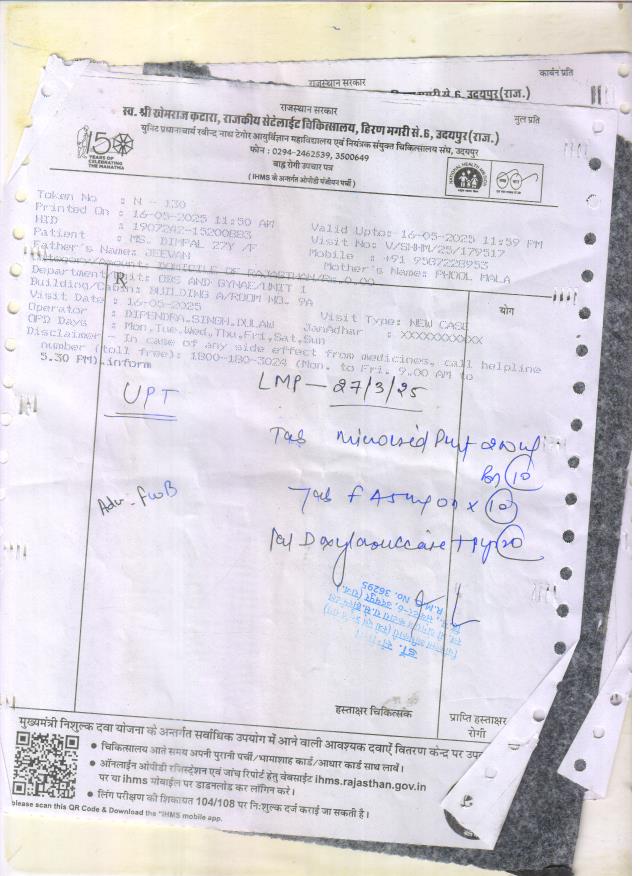 कार्बन प्रति
राजस्थान सरकार
उदयपुर(राज.)
राजस्थान सरकार
मुल प्रति
स्व. श्री खेमराज कटारा, राजकीय सेटेलाईट चिकित्सालय, हिरण मगरी से.6, उदयपुर(राज.)
युनिट प्रधानाचार्य रवीन्द्र नाथ टेगोर आयुर्विज्ञान महाविद्यालय एवं नियंत्रक संयुक्त चिकित्सालय संघ, उदयपुर
फोन : 0294-2462539, 3500649
बाह्य रोगी उपचार पत्र
( IHMS के अन्तर्गत ओपीडी पंजीयन पर्ची )
150
YEARS OF
CELEBRATING
THE MAHATMA
Token No : N - 130
Printed On : 16-05-2025 11:50 AM Valid Upto: 16-05-2025 11:59 PM
HID : Visit No: V/SHHM/25/179517
Patient : MS. DIMPAL 27Y /F Mobile : +91 9587228953
Father's Name: JEEWAN Mother's Name: PHOOL MALA
Category/Amount: DOMICILE OF RAJASTHAN/Rs.0.00
Department/Unit: OBS AND GYNAE/UNIT 1
Building/Cabin: BUILDING A/ROOM NO. 9A
Visit Date : 16-05-2025 Visit Type: NEW CASE
Operator : DIPENDRA.SINGH.DULAW JanAadhar : XXXXXXXXXXX
OPD Days : Mon,Tue,Wed,Thu,Fri,Sat,Sun
Disclaimer - In case of any side effect from medicines, call helpline
number (toll free): 1800-180-3024 (Mon. to Fri. 9.00 AM to
5.30 PM).inform
योग
UPT
LMP - 27/3/25
Tab
10
Adv. FWB
Tab FA 5mg OD x 10
20
R.M.C. No. 36295
हस्ताक्षर चिकित्सक
प्राप्ति हस्ताक्षर
रोगी
मुख्यमंत्री निशुल्क दवा योजना के अन्तर्गत सर्वाधिक उपयोग में आने वाली आवश्यक दवाऐं वितरण केन्द्र पर
• चिकित्सालय आते समय अपनी पुरानी पर्ची/भामाशाह कार्ड/आधार कार्ड साथ लावें।
• ऑनलाईन ओपीडी रजिस्ट्रेशन एवं जांच रिपोर्ट हेतु वेबसाईट ihms.rajasthan.gov.in
पर या ihms मोबाईल पर डाउनलोड कर लॉगिन करे।
• लिंग परीक्षण की शिकायत 104/108 पर नि:शुल्क दर्ज कराई जा सकती है।
please scan this QR Code & Download the "IHMS mobile app.